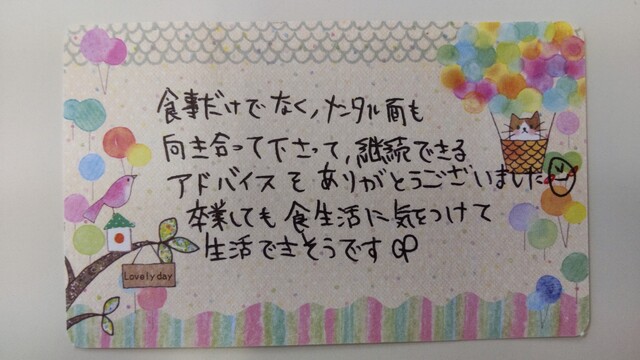 食事だけでなく、メンタル面も
向き合って下さって、継続できる
アドバイスをありがとうございました
卒業しても食生活に気をつけて
生活できそうです
Lovely day